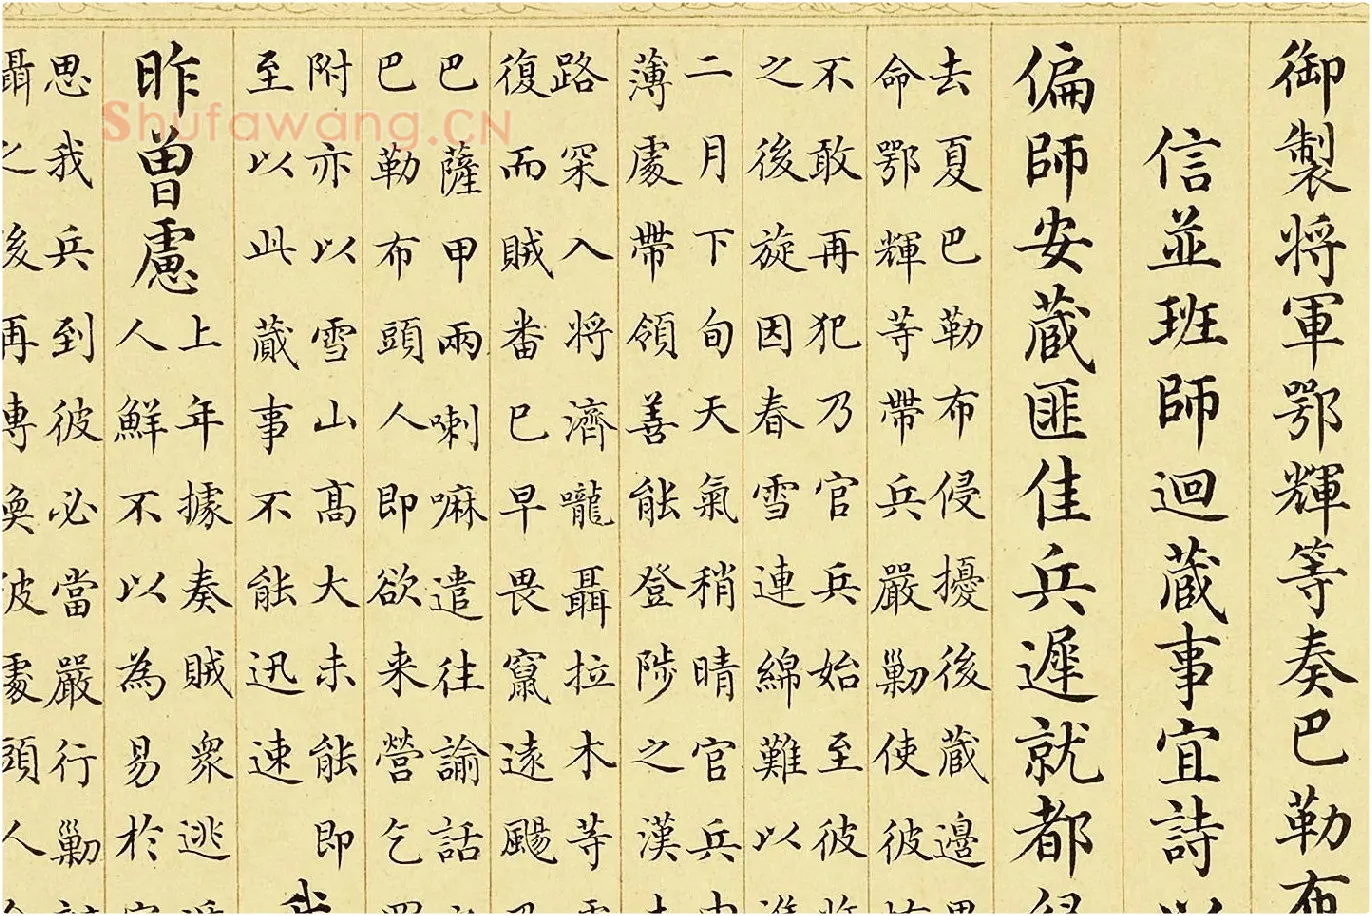 御製将軍鄂輝等奏巴勒布
信並班師迴蔵事宜詩以
偏師安蔵匪佳兵遲就都
去夏巴勒布侵擾後蔵邊
命鄂輝等帶兵嚴勦使彼
不敢再犯乃官兵始至彼
之後旋因春雪連綿難以
二月下旬天氣稍晴官兵
薄處帶領善能登陟之漢
路深入将濟嚨聶拉木等
復而賊番已早畏竄遠颺
巴薩甲兩喇嘛遣往諭話
巴勒布頭人即欲来營乞
附亦以雪山高大未能即
至以此蔵事不能迅速
我
昨曾慮
上年據奏賊衆逃
人鮮不以為易於
思我兵到彼必當嚴行勦
聶之後再彼處頭人
Shufawang.CN